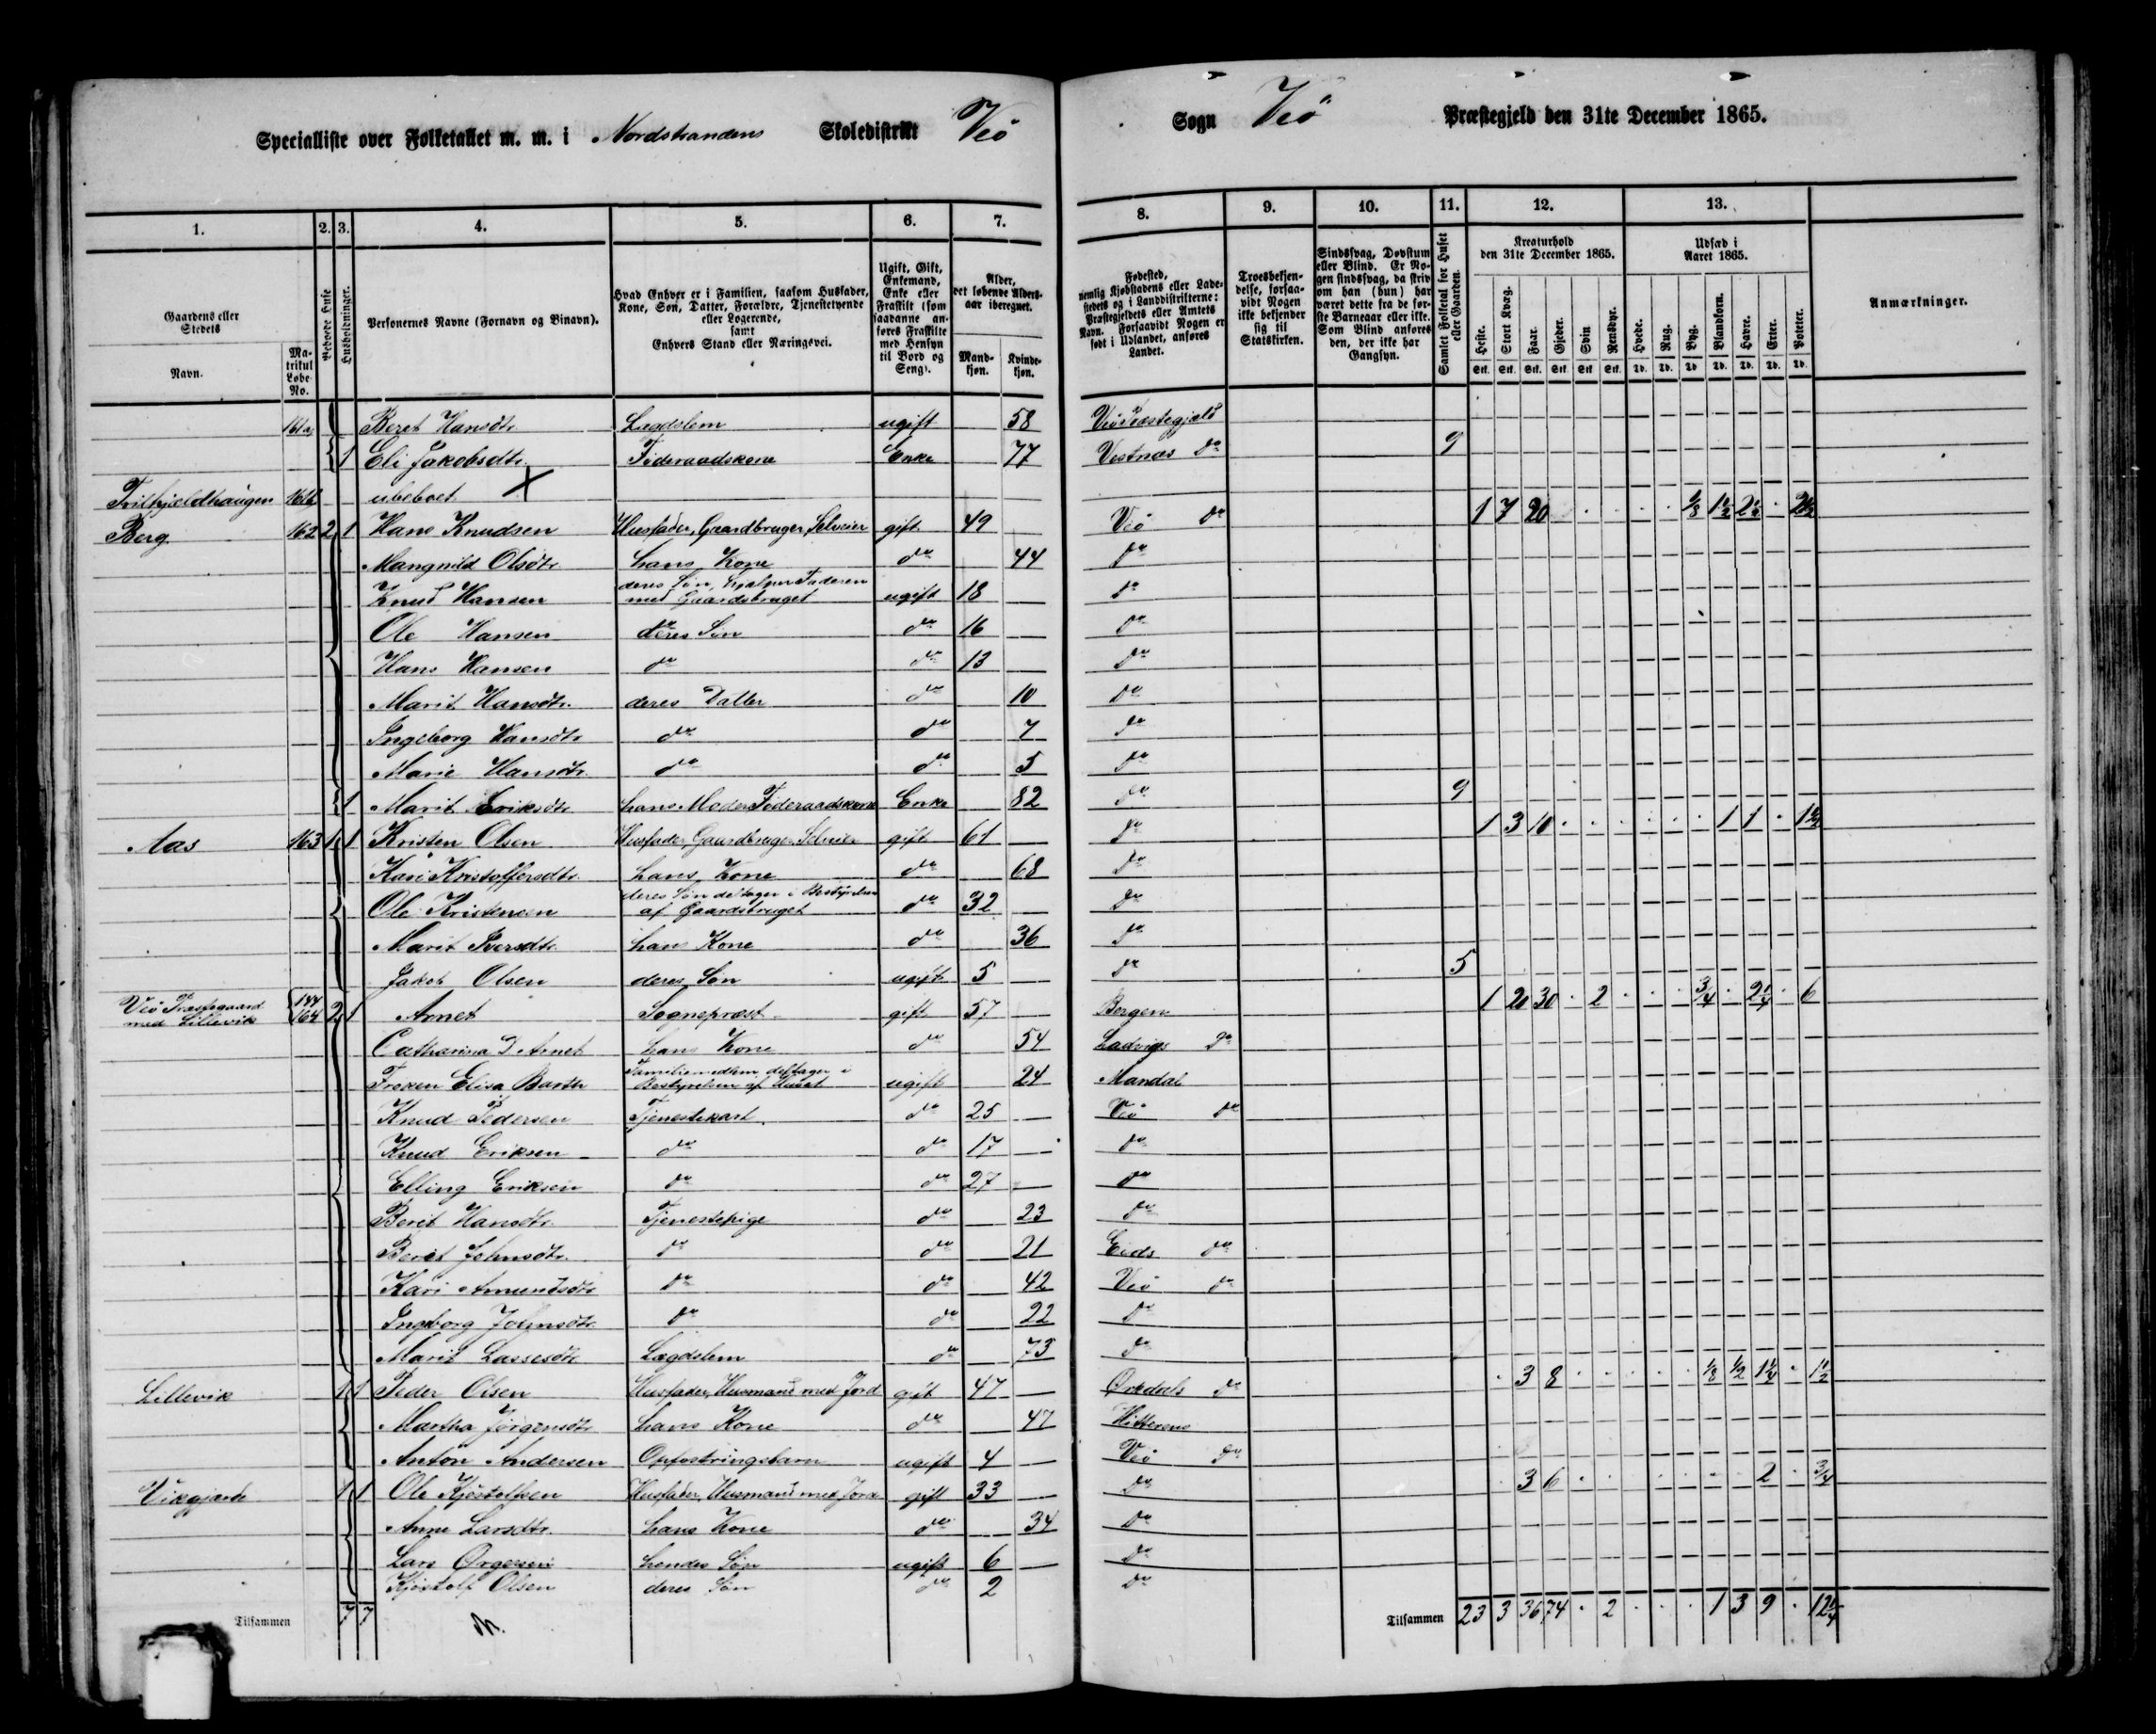 Specialliste over Folketallet m. m. i Nordstrandens Skoledistrikt Veö Sogn Veö Præstegjeld den 31te December 1865.
1. 2. 3. 4. 5. 6. 7. 8. 9. 10. 11. 12. 13.
Gaardens eller Stedets
Navn. Matrikul Løbe No.
Bebode Huse
Husholdninger.
Personernes Navne (Fornavn og Binavn).
Hvad Enhver er i Familien, saasom Husfader, Kone, Søn, Datter, Forældre, Tjenestetyende eller Logerende, samt Enhvers Stand eller Næringsvei.
Ugift, Gift, Enkemand, Enke eller Fraskilt (som saadanne anføres Fraskilte med Hensyn til Bord og Seng).
Alder, det løbende Alders-aar iberegnet.
Mandkjøn. Kvindekjøn.
Fødested, nemlig Kjøbstadens eller Ladestedets og i Landdistrikterne: Præstegjeldets eller Amtets Navn. Forsaavidt Nogen er født i Udlandet, anføres Landet.
Troesbekjendelse, forsaavidt Nogen ikke bekjender sig til Statskirken.
Sindssvag, Døvstum eller Blind. Er Nogen sindssvag, da skriv om han (hun) har været dette fra de første Barneaar eller ikke. Som Blind anføres den, der ikke har Gangsyn.
Samlet Folketal for Huset eller Gaarden.
Kreaturhold den 31te December 1865.
Heste. Stort Kvæg. Faar. Gjeder. Svin Rensdyr.
Udsæd i Aaret 1865.
Hvede. Rug. Byg. Blandkorn. Havre. Erter. Poteter.
Anmærkninger.
161a Beret Hansdtr. Lægdslem ugift 58 Veö Præstegjeld
1 Eli Jakobsdtr. Føderaadskone Enke 77 Vestnæs do 9
161b ubeboet X
Berg 162 2 1 Hans Knudsen Husfader, Gaardbruger, Selveier gift 49 Veö do 1 7 20 · · · · · 1/8 1 1/2 2 1/2 · 2 1/2
Mangnild Olsdtr. hans Kone do 44 do
Knud Hansen deres Søn, hjælper Faderen med Gaardsbruget ugift 18 do
Ole Hansen deres Søn do 16 do
Hans Hansen do do 13 do
Marit Hansdtr. deres Datter do 10 do
Ingeborg Hansdtr do do 7 do
Marie Hansdtr. do do 5 do
1 Marit Eriksdtr. hans Moder Føderaadskone Enke 82 do 9
Aas 163 1 1 Kristen Olsen Husfader, Gaardbruger, Selveier gift 61 do 1 3 10 · · · · · · 1 1 · 1 1/2
Kari Kristoffersdtr. hans Kone do 68 do
Ole Kristensen deres Søn deltager i Bestyrelsen af Gaardsbruget do 32 do
Marit Iversdtr. hans Kone do 36 do
Jakob Olsen deres Søn ugift 5 do 5
Veö Præstegaard med Lillevik 144 164 2 1 Arnet Sognepræst gift 57 Bergen 1 20 30 · 2 · · · 3/4 · 2 1/4 · 6
Catharina D Arnet hans Kone do 54 Ladvigs do
Frøken Elisa Barth Familiemedlem, deltager i Bestyrelsen af Huset ugift 24 Mandal
Knud Pedersen Tjenestekarl do 25 Veö do
Knud Eriksen do do 17 do
Elling Eriksen do do 27 do
Berit Hansdtr. Tjenestepige do 23 do
Beret Johnsdtr. do do 21 Eids do
Kari Amundsdtr do do 42 Veö do
Ingborg Johnsdtr. do do 22 do
Marit Lassesdtr Lægdslem do 73 do
Lillevik 1 1 Peder Olsen Husfader, Husmand med Jord gift 47 Ørkedals do · 3 8 · · · · · 1/8 1/2 1 1/4 · 1 1/2
Martha Jørgensdtr. hans Kone do 47 Hitterens
Anton Andersen Opfostringsbarn ugift 4 Veö do
Vikgjerde 1 1 Ole Kjöstolfsen Husfader, Husmand med Jord gift 33 do · 3 6 · · · · · · · 2 · 3/4
Anne Larsdtr. hans Kone do 34 do
Lars hendes Søn ugift 6 do
Kjöstolf Olsen deres Søn do 2 do
Tilsammen 7 7
Tilsammen 23 3 36 74 · 2 · · · 1 3 9 · 12 1/4